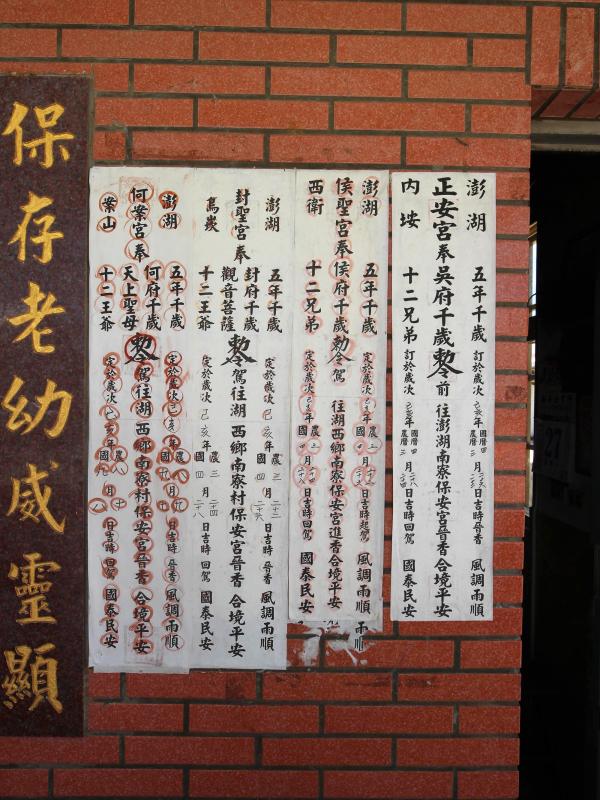 澎湖 五年千歲 訂於歲次
正安宮奉 吳府千歲 敕令 前往澎湖南寮保安宮晉香 合境平安
內垵 十二兄弟 訂於歲次
日吉時晉香 風調雨順
日吉時回駕 國泰民安
澎湖 五年千歲 定於歲次 日吉時起駕 風調雨順
侯聖宮奉 侯府千歲 敕令 駕往湖西鄉南寮保安宮進香 合境平安
西衛 十二兄弟 定於歲次 日吉時回駕 國泰民安
澎湖 五年千歲 定於歲次 己亥年 農 三 月 二十三 日吉時 晉香 風調雨順
封聖宮奉 封府千歲 觀音菩薩 敕令 駕往湖西鄉南寮村保安宮晉香 合境平安
烏崁 十二王爺 定於歲次 己亥年 國 四 月 二十八 日吉時 回駕 國泰民安
澎湖 五年千歲 定於歲次 日吉時 晉香 風調雨順
何案宮奉 何府千歲 天上聖母 敕令 駕往湖西鄉南寮村保安宮晉香 合境平安
案山 十二王爺 定於歲次 日吉時 回駕 國泰民安
保存老幼威靈顯
27